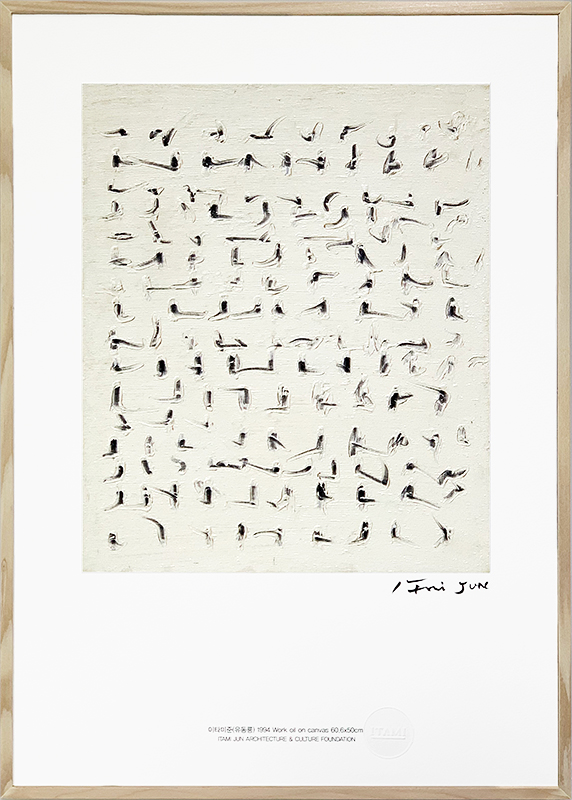 ITAMI JUN
이타미준(유동룡) 1994 Work oil on canvas 60.6x50cm
ITAMI JUN ARCHITECTURE & CULTURE FOUNDATION
ITAMI